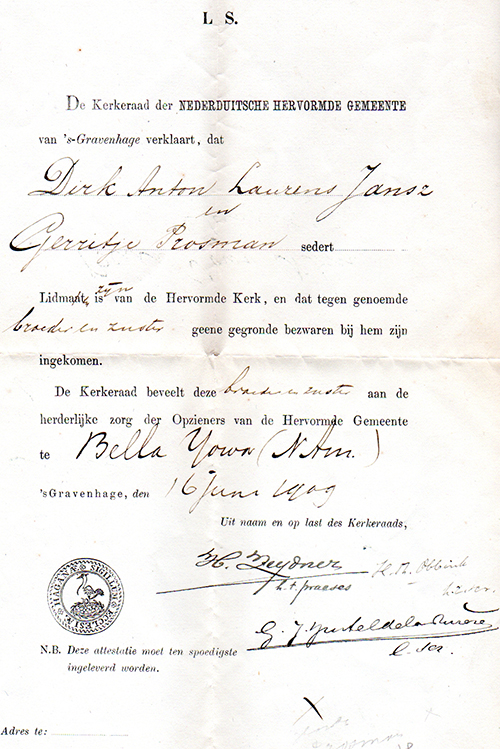 L S.
De Kerkeraad der NEDERDUITSCHE HERVORMDE GEMEENTE
van 's-Gravenhage verklaart, dat
Dirk Anton Laurens Jansz
en
Gerritje Prosman sedert
zijn
Lidmaat, is van de Hervormde Kerk, en dat tegen genoemde
broeder en zuster geene gegronde bezwaren bij hem zijn
ingekomen.
De Kerkeraad beveelt deze broeder en zuster aan de
herderlijke zorg der Opzieners van de Hervormde Gemeente
te Bella Yowa (N Am.)
'sGravenhage, den 16 Juni 1909
Uit naam en op last des Kerkeraads,
H. Zeydner
h.t. praeses
SIGILLUM ECCLESIÆ HAGAN
N.B. Deze attestatie moet ten spoedigste
ingeleverd worden.
Adres te: